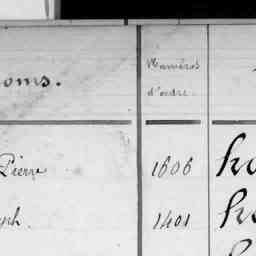 Numéros
oms.
d'ordre.
Pierre 1606
ph. 1401